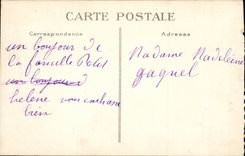 CARTE POSTALE
Correspondance
Adresse
un bonjour de
la famille
un bonjour d
helene vous embrasse
bien
Madame Madeleine
gagnel